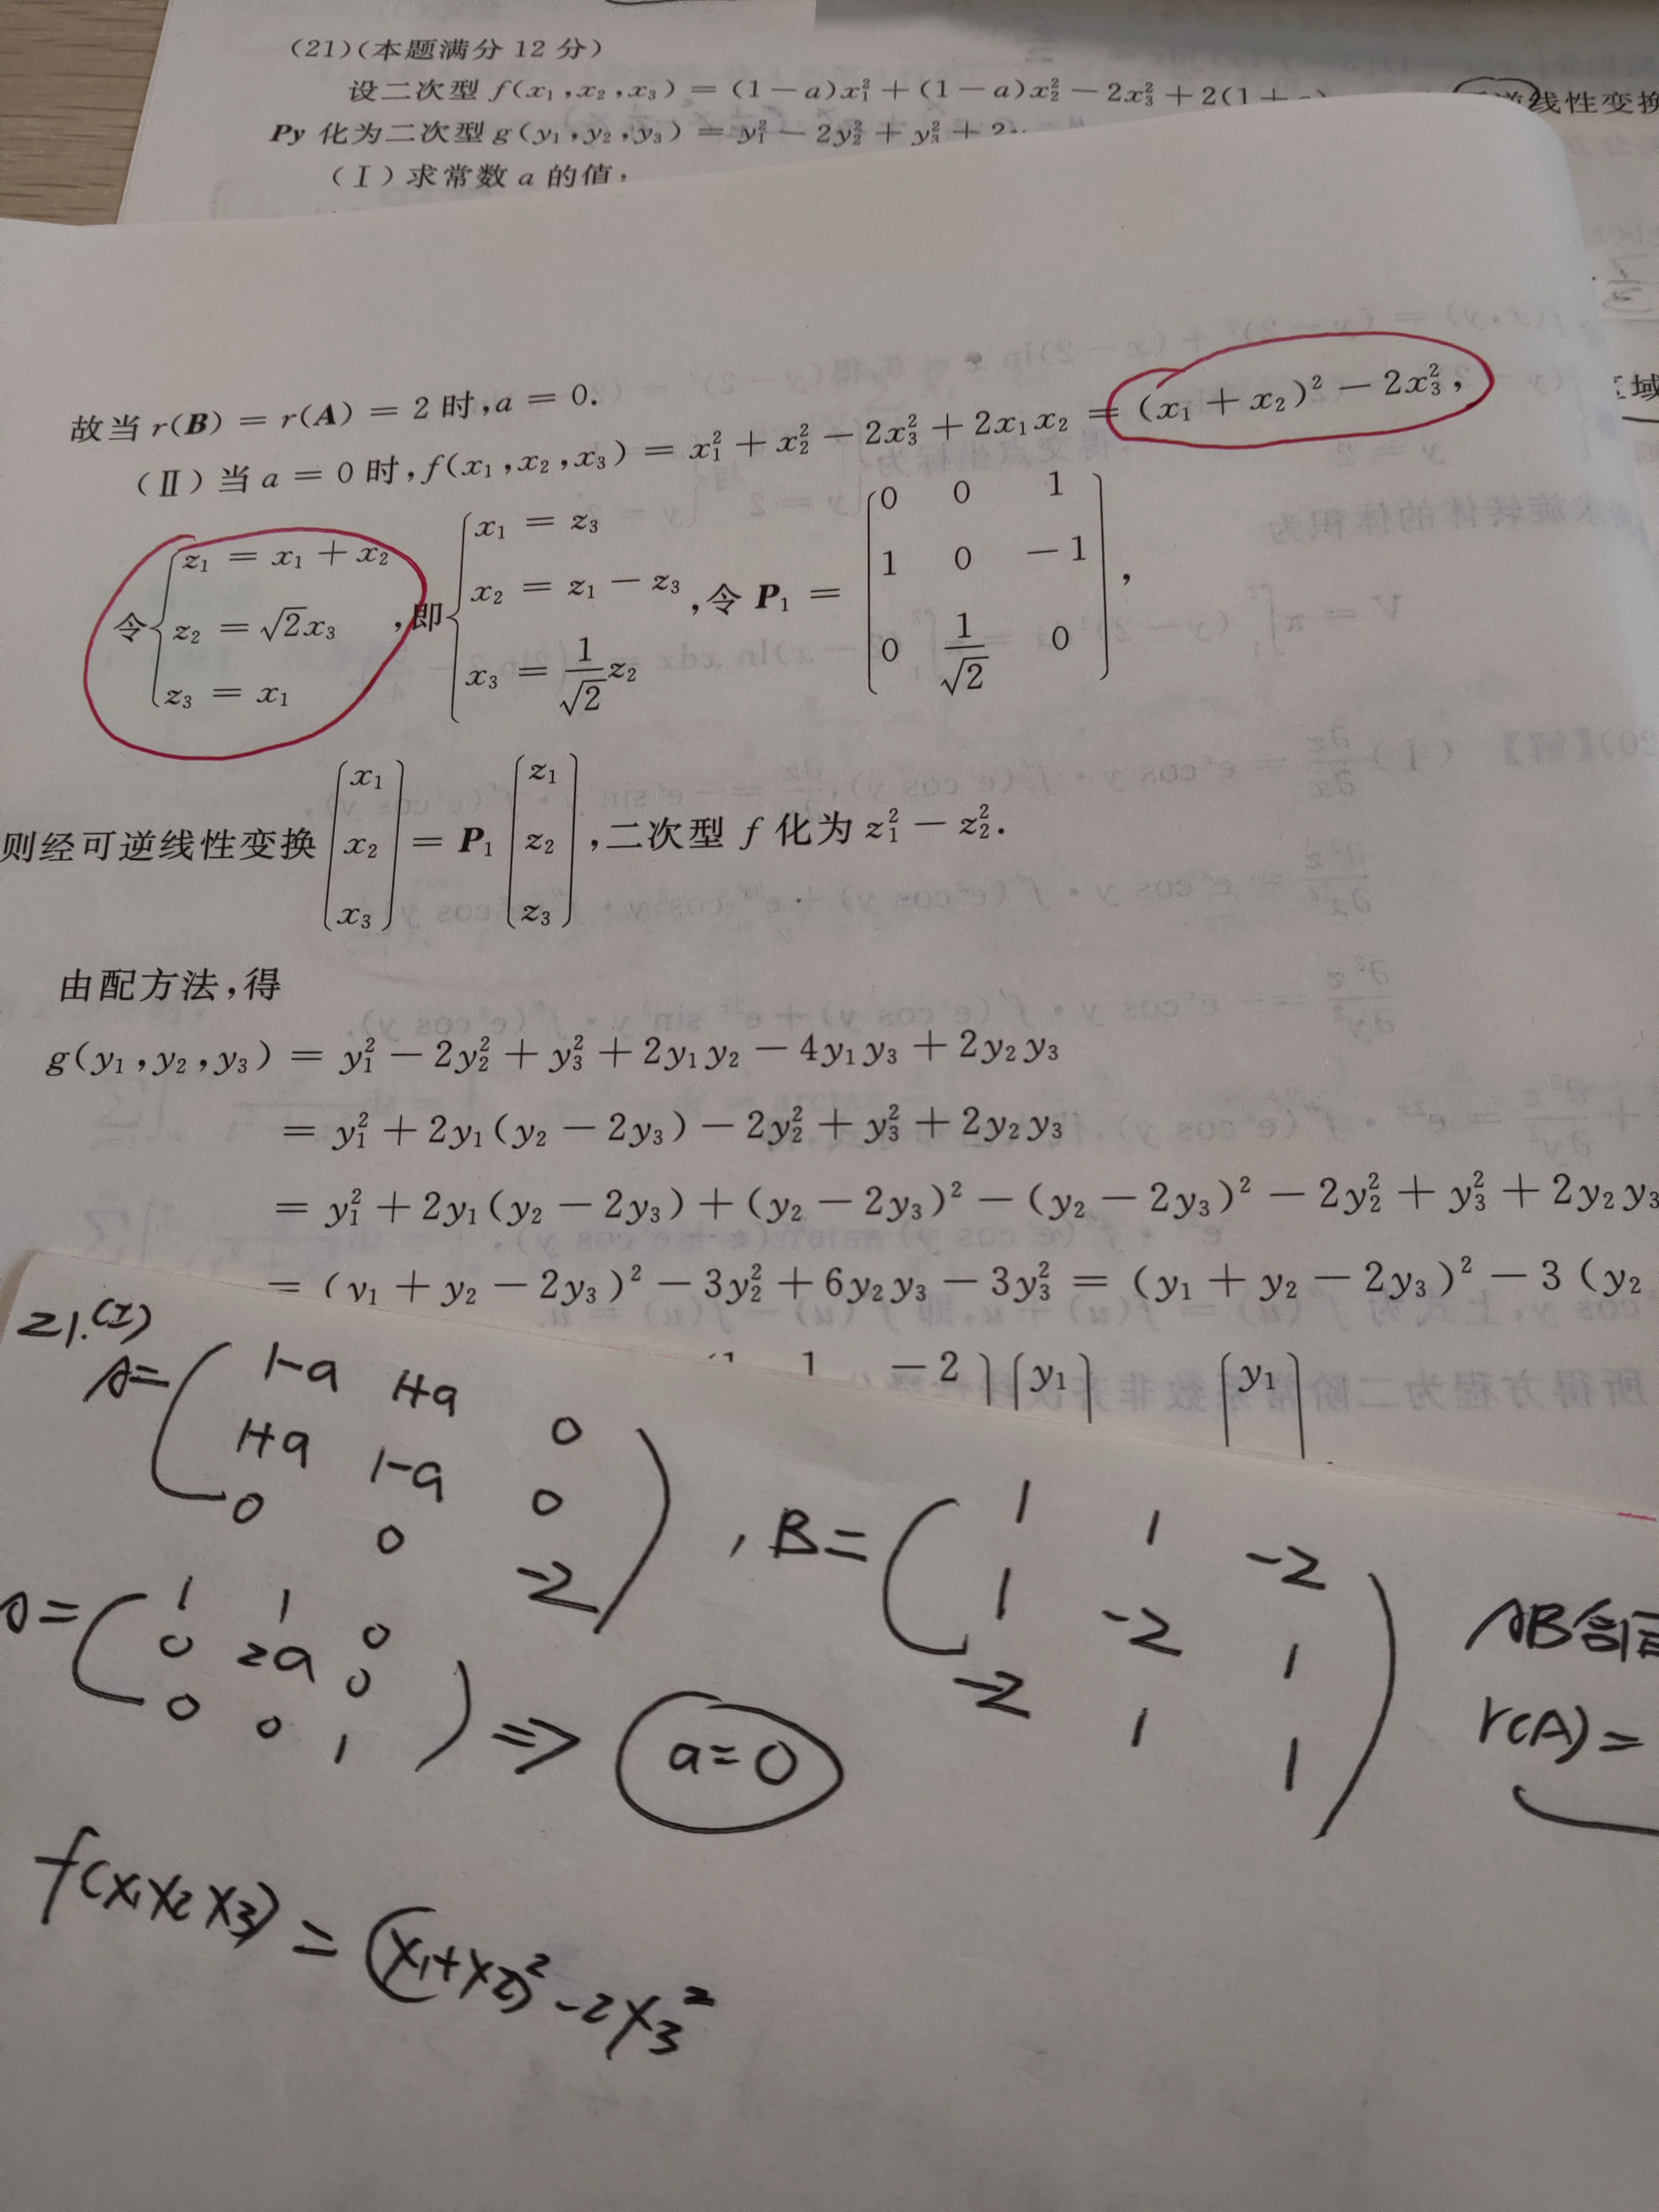 (21)(本题满分 12 分)
设二次型 f(x₁,x₂,x₃) = (1-a)x₁² + (1-a)x₂² - 2x₃² + 2(1+ 逆线性变换
Py 化为二次型 g(y₁,y₂,y₃) = y₁² - 2y₂² + y₃² + 2
(Ⅰ)求常数 a 的值
故当 r(B) = r(A) = 2 时,a = 0.
(Ⅱ)当 a = 0 时,f(x₁,x₂,x₃) = x₁² + x₂² - 2x₃² + 2x₁x₂ = (x₁ + x₂)² - 2x₃²,
令{z₁ = x₁ + x₂, z₂ = √2x₃, z₃ = x₁ ,即{x₁ = z₃, x₂ = z₁ - z₃, x₃ = 1/√2 z₂ ,令 P₁ = (0 0 1; 1 0 -1; 0 1/√2 0),
则经可逆线性变换 (x₁; x₂; x₃) = P₁ (z₁; z₂; z₃),二次型 f 化为 z₁² - z₂².
由配方法,得
g(y₁,y₂,y₃) = y₁² - 2y₂² + y₃² + 2y₁y₂ - 4y₁y₃ + 2y₂y₃
= y₁² + 2y₁(y₂ - 2y₃) - 2y₂² + y₃² + 2y₂y₃
= y₁² + 2y₁(y₂ - 2y₃) + (y₂ - 2y₃)² - (y₂ - 2y₃)² - 2y₂² + y₃² + 2y₂y₃
= (y₁ + y₂ - 2y₃)² - 3y₂² + 6y₂y₃ - 3y₃² = (y₁ + y₂ - 2y₃)² - 3(y₂
1 -2) (y₁ (y₁
21.(I)
A=(1-a 1+a 0; 1+a 1-a 0; 0 0 -2) , B=(1 1 -2; 1 -2 1; -2 1 1) AB合同
=(1 1 0; 0 2a 0; 0 0 1) ⇒ a=0 r(A)=
f(x₁x₂x₃) = (x₁+x₂)² -2x₃²